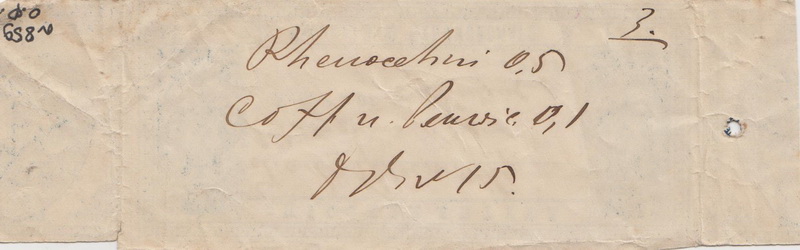 3.
Phenacetini 0,5
Coff n. benzoic. 0,1
15.
№ 859